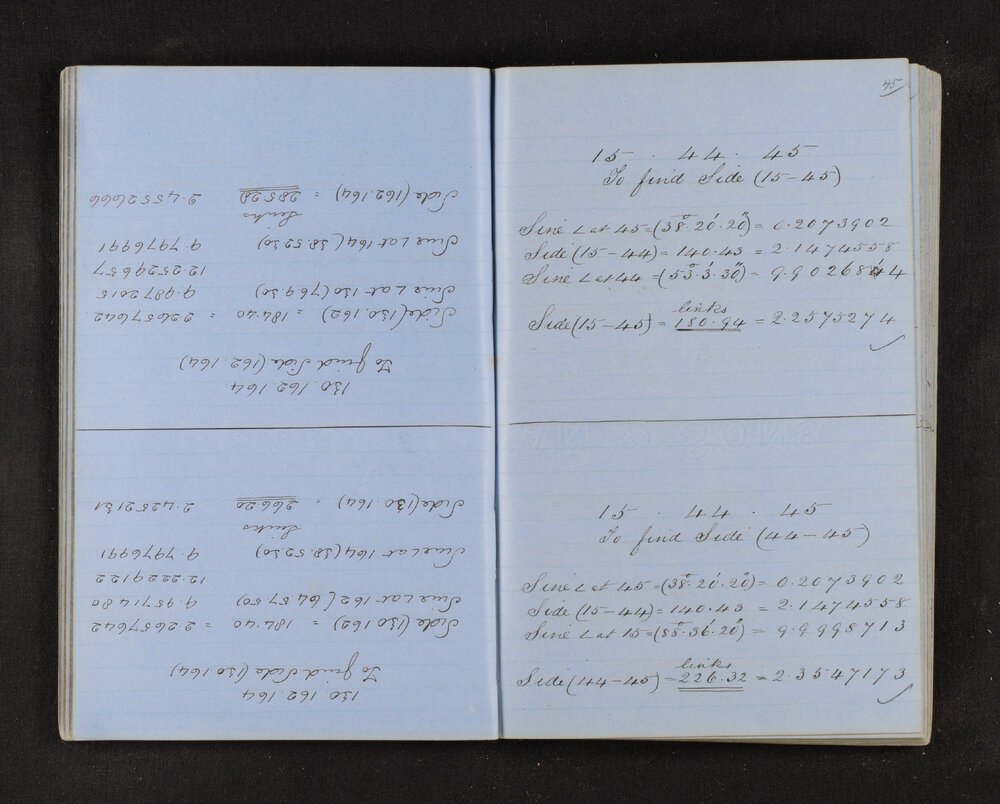 130. 162. 164
To find Side (130.164)
Side (130 162) = 184.40 = 2.2657642
Sine ∠ at 162 (64.57.50) 9.9571480
12.2229122
Sine ∠ at 164 (38.52.30) 9.7976991
links
Side (130.164) = 266.20 2.4252131
130. 162. 164
To find Side (162.164)
Side (130.162) = 184.40 = 2.2657642
Sine ∠ at 130 (76 9.30) 9.9872015
12.2529657
Sine ∠ at 164 (38.52.30) 9.7976991
links
Side (162.164) = 285.28 2.4552666
45
15 . 44 . 45
To find Side (15-45)
Sine ∠ at 45 = (38°.20'.20") = 0.2073902
Side (15-44) = 140.43 = 2.1474558
Sine ∠ at 44 = (53°.3'.30") = 9.9026844
links
Side (15-45) = 180.94 = 2.2575274
15 . 44 . 45
To find Side (44-45)
Sine ∠ at 45 = (38°.20'.20") = 0.2073902
Side (15-44) = 140.43 = 2.1474558
Sine ∠ at 15 = (88°.36'.20") = 9.9998713
links
Side (44-45) = 226.32 = 2.3547173